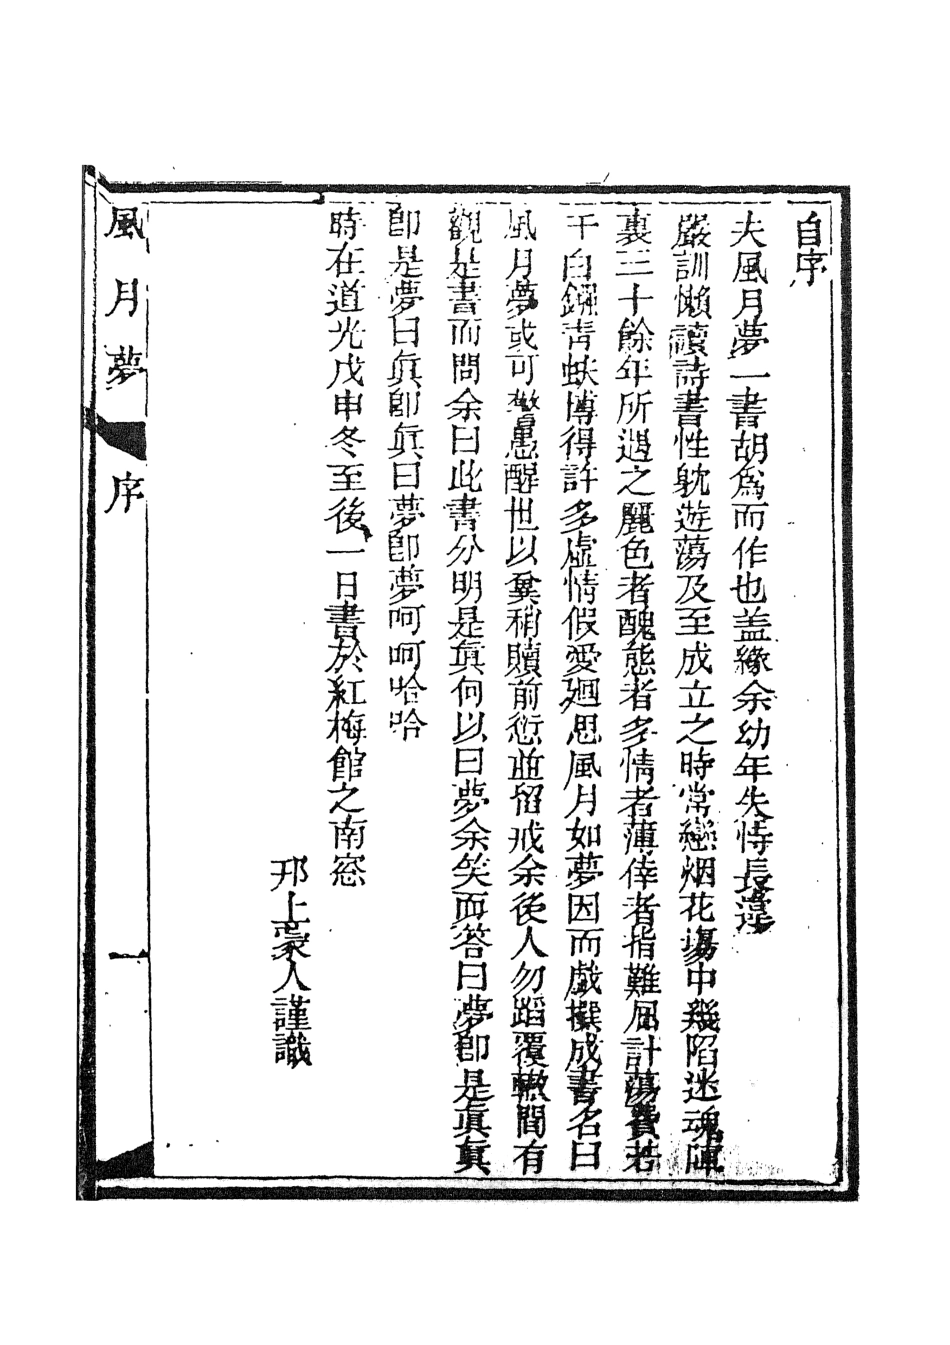 自序
夫風月夢一書胡為而作也盖緣余幼年失恃長違
嚴訓懶讀詩書性躭遊蕩及至成立之時常戀烟花塲中幾陷迷魂陣
裏三十餘年所遇之麗色者醜態者多情者薄倖者指難屈計蕩費若
干白鏹青蚨博得許多虛情假愛廻思風月如夢因而戲撰成書名曰
風月夢或可警愚醒世以冀稍贖前愆並留戒余後人勿蹈覆轍間有
觀是書而問余曰此書分明是眞何以曰夢余笑而答曰夢卽是眞眞
卽是夢曰眞卽眞曰夢卽夢呵呵哈哈
時在道光戊申冬至後一日書於紅梅館之南窓
邗上蒙人謹識
風月夢
序
一